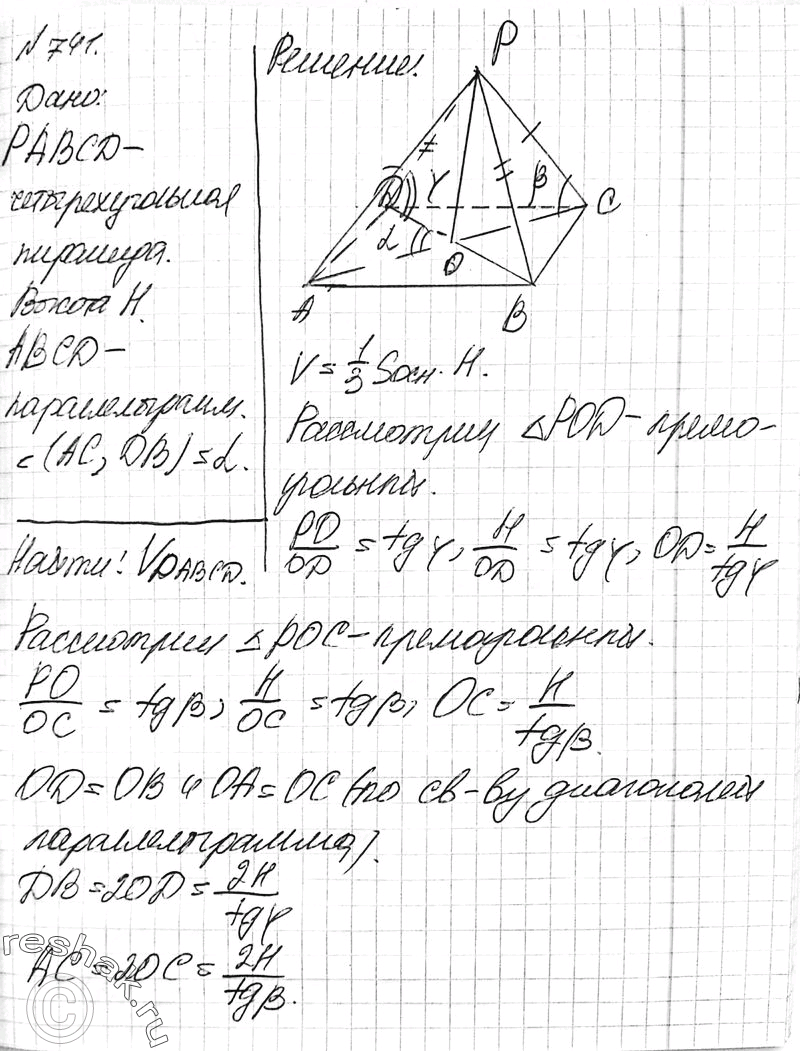 N 741.
Дано:
PABCD –
четырехугольная
пирамида.
Высота H.
ABCD –
параллелограмм.
∠(AC, DB) = α.
Найти: V_{PABCD}.
Решение:
P
D
γ
β
C
α
O
A
B
V = 1/3 Sосн · H.
Рассмотрим △POD – прямо-
угольный.
PO/OD = tgγ, H/OD = tgγ, OD = H/tgγ
Рассмотрим △POC – прямоугольный.
PO/OC = tgβ, H/OC = tgβ, OC = H/tgβ.
OD = OB и OA = OC (по св-ву диагоналей
параллелограмма).
DB = 2OD = 2H/tgγ
AC = 2OC = 2H/tgβ.
reshak.ru
©